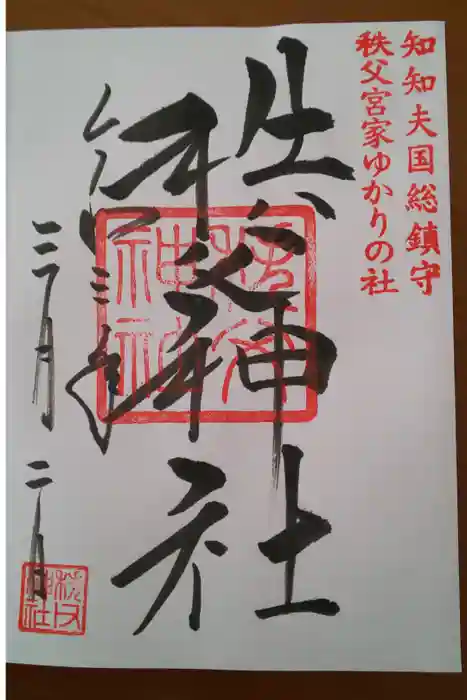 知知夫国総鎮守
秩父宮家ゆかりの社
秩父神社
令和三年
三月二日
秩父神社